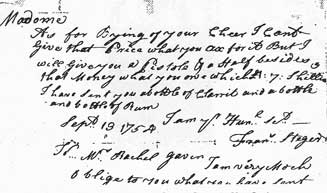 Madome
As for Bying of your Cheer I Cant
Give that Price what you ax for it But I
will Give you a Pistole & a Half besides
that Money what you one which is 7 Shillin
I have sent you a botle of Clarrit and a bottle
and bottle of Rum
I am yr Humle Sert
Sept 19 1754
Fran Stager
To Mrs Rachel Gaven
I am very Moch
Oblige to you what you have sent